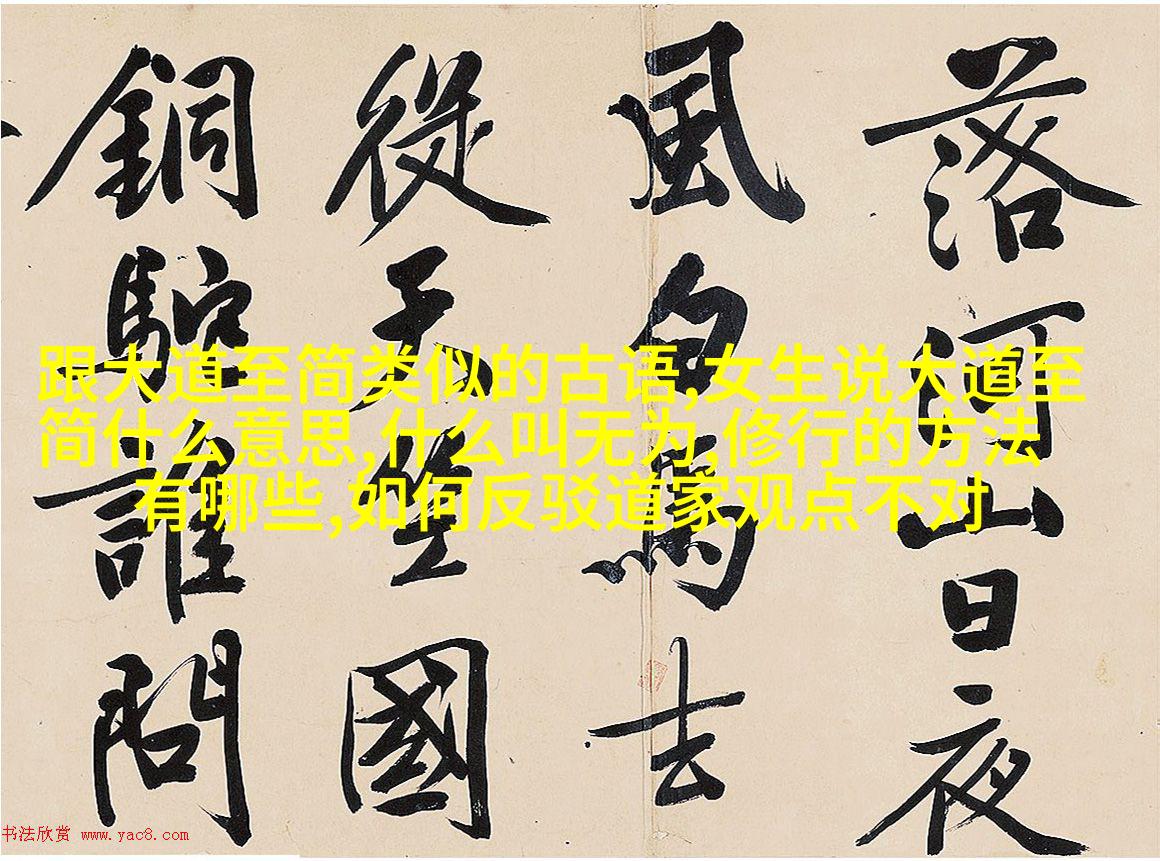 落河山日夜
風白馬去
從天竺國
銅駝誰問
跟大道至简类似的古语,女生说大道至
简什么意思,什么叫无为,修行的方法
有哪些,如何反驳道家观点不对
书法欣赏 www.yac8.com